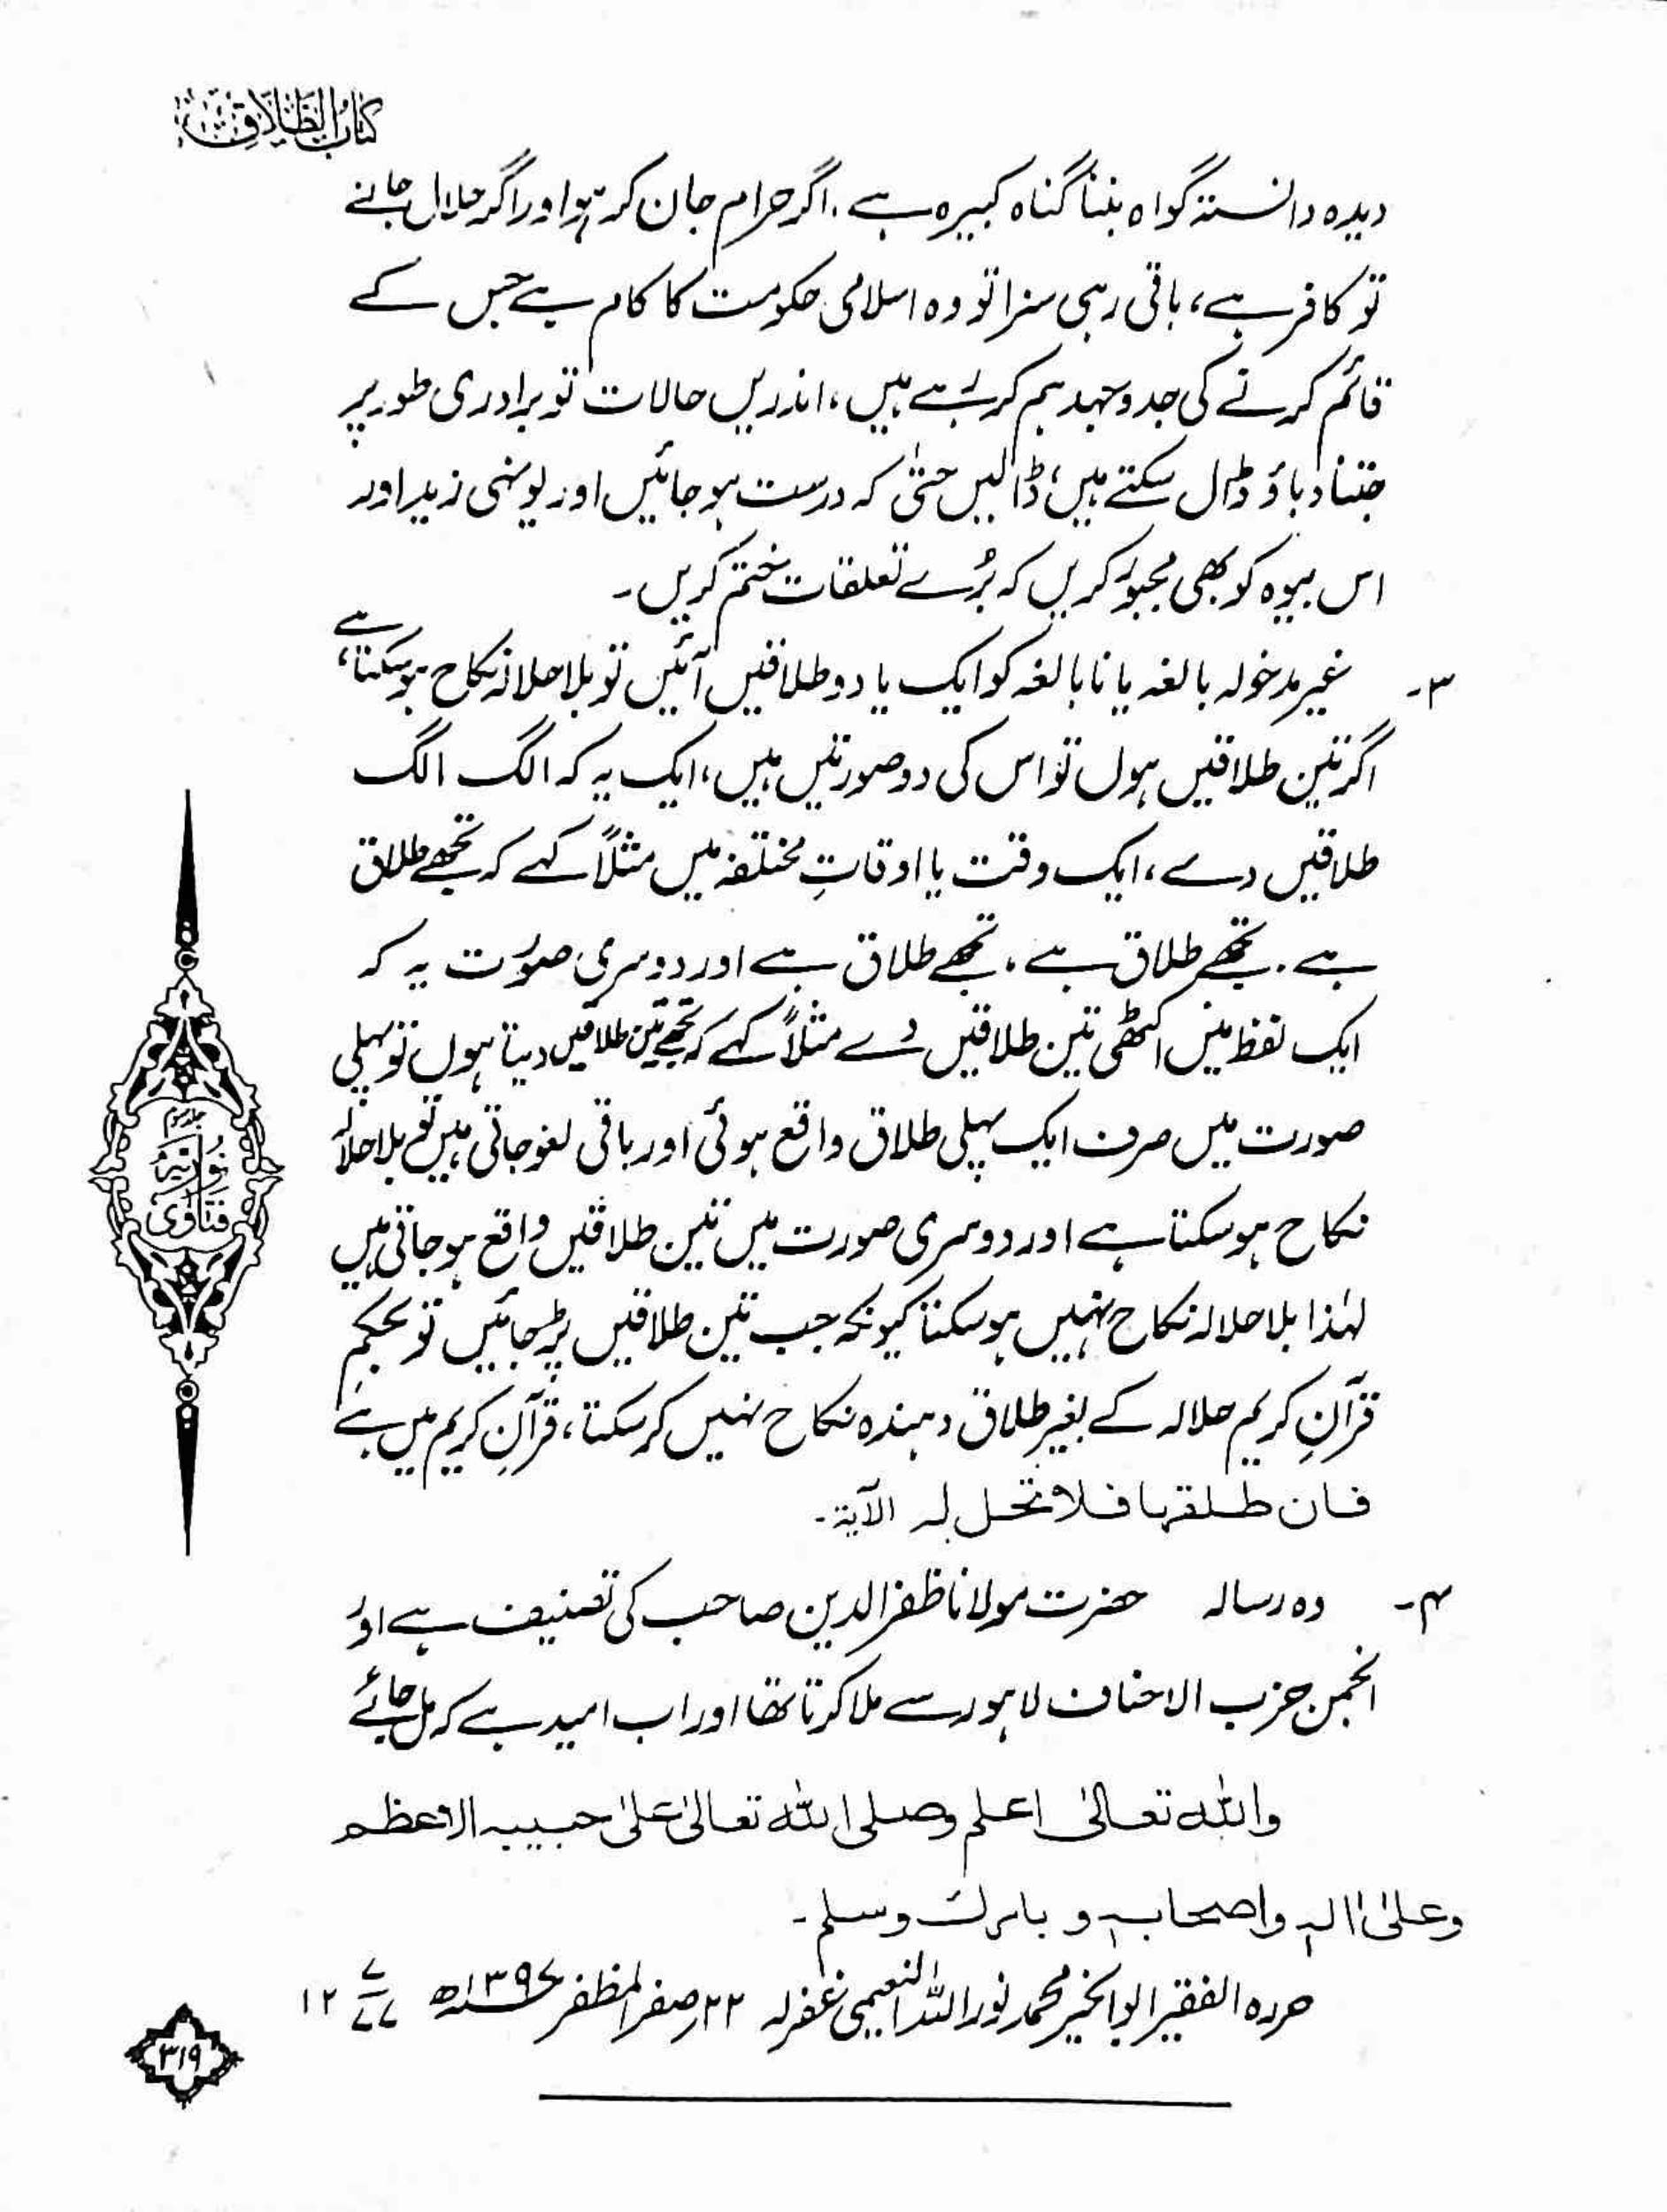 کتاب الطلاق
دیدہ دانستہ گواہ بننا گناہ کبیرہ ہے، اگر حرام جان کر ہو اور اگر حلال جانے
تو کافر ہے، باقی رہی سزا تو وہ اسلامی حکومت کا کام ہے جس کے
قائم کرنے کی جدوجہد ہم کر رہے ہیں، اندریں حالات تو برادری طور پر
جتنا دباؤ ڈال سکتے ہیں، ڈالیں حتیٰ کہ درست ہو جائیں اور یونہی زید اور
اس بیوہ کو بھی مجبور کریں کہ بُرے تعلقات ختم کریں۔
۳۔ غیر مدخولہ بالغہ یا نابالغہ کو ایک یا دو طلاقیں آئیں تو بلا حلالہ نکاح ہو سکتا ہے،
اگر تین طلاقیں ہوں تو اس کی دو صورتیں ہیں، ایک یہ کہ الگ الگ
طلاقیں دے، ایک وقت یا اوقاتِ مختلفہ میں مثلاً کہے کہ تجھے طلاق
ہے۔ تجھے طلاق ہے، تجھے طلاق ہے اور دوسری صورت یہ کہ
ایک لفظ میں اکٹھی تین طلاقیں دے مثلاً کہے کہ تجھے تین طلاقیں دیتا ہوں تو پہلی
صورت میں صرف ایک پہلی طلاق واقع ہوئی اور باقی لغو جاتی ہیں تو بلا حلالہ
نکاح ہو سکتا ہے اور دوسری صورت میں تین طلاقیں واقع ہو جاتی ہیں
لہٰذا بلا حلالہ نکاح نہیں ہو سکتا کیونکہ جب تین طلاقیں پڑ جائیں تو بحکمِ
قرآنِ کریم حلالہ کے بغیر طلاق دہندہ نکاح نہیں کر سکتا، قرآنِ کریم میں ہے
فان طلقها فلا تحل له الآیۃ۔
۴۔ وہ رسالہ حضرت مولانا ظفر الدین صاحب کی تصنیف ہے اور
انجمن حزب الاحناف لاہور سے ملا کرتا تھا اور اب امید ہے کہ مل جائے
والله تعالیٰ اعلم وصلی الله تعالیٰ علیٰ حبیبہ الاعظم
وعلیٰ اٰلہٖ واصحابہٖ و بارك وسلم۔
حررہ الفقیر ابوالخیر محمد نور اللہ النعیمی غفرلہ ۲۲ صفر المظفر ۱۳۹۷ھ ۱۲
فتاویٰ
نوریہ
۳۱۹